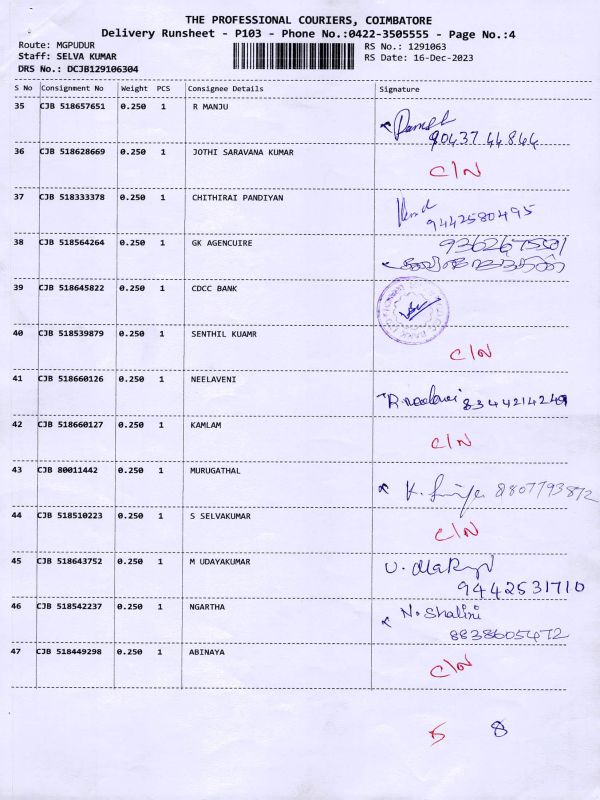 THE PROFESSIONAL COURIERS, COIMBATORE
Delivery Runsheet - P103 - Phone No.:0422-3505555 - Page No.:4
Route: MGPUDUR
RS No.: 1291063
Staff: SELVA KUMAR
RS Date: 16-Dec-2023
DRS No.: DCJB129106304
S No Consignment No Weight PCS Consignee Details Signature
35 CJB 518657651 0.250 1 R MANJU
90437 44844
36 CJB 518628669 0.250 1 JOTHI SARAVANA KUMAR
C/N
37 CJB 518333378 0.250 1 CHITHIRAI PANDIYAN
9442580495
38 CJB 518564264 0.250 1 GK AGENCUIRE
39 CJB 518645822 0.250 1 CDCC BANK
40 CJB 518539879 0.250 1 SENTHIL KUAMR
C/N
41 CJB 518660126 0.250 1 NEELAVENI
42 CJB 518660127 0.250 1 KAMLAM
C/N
43 CJB 80011442 0.250 1 MURUGATHAL
8807793872
44 CJB 518510223 0.250 1 S SELVAKUMAR
C/N
45 CJB 518643752 0.250 1 M UDAYAKUMAR
9442531710
46 CJB 518542237 0.250 1 NGARTHA
N. Shalini
8838605472
47 CJB 518449298 0.250 1 ABINAYA
C/N
5 8